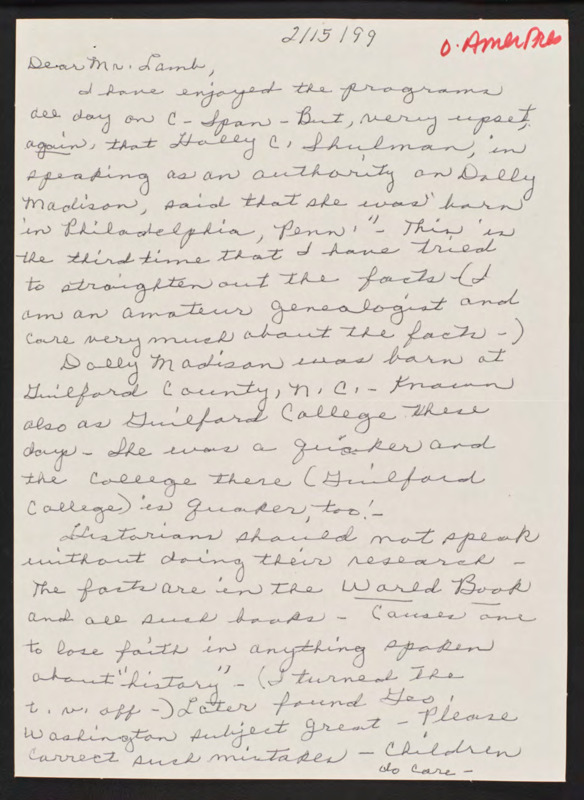 2/15/99
O. Amer Pres
Dear Mr. Lamb,
I have enjoyed the programs
all day on C-Span - But, very upset,
again, that Holly C. Shulman, in
speaking as an authority on Dolly
Madison, said that she was "born
in Philadelphia, Penn." - This is
the third time that I have tried
to straighten out the facts - (I
am an amateur genealogist and
care very much about the facts -)
Dolly Madison was born at
Guilford County, N.C. - Known
also as Guilford College these
days - She was a quaker and
the college there (Guilford
College) is quaker, too! -
Historians should not speak
without doing their research -
The facts are in the World Book
and all such books - Causes one
to lose faith in anything spoken
about "history" - (I turned the
t.v. off -) Later found Geo.
Washington subject great - Please
correct such mistakes - Children
do care -